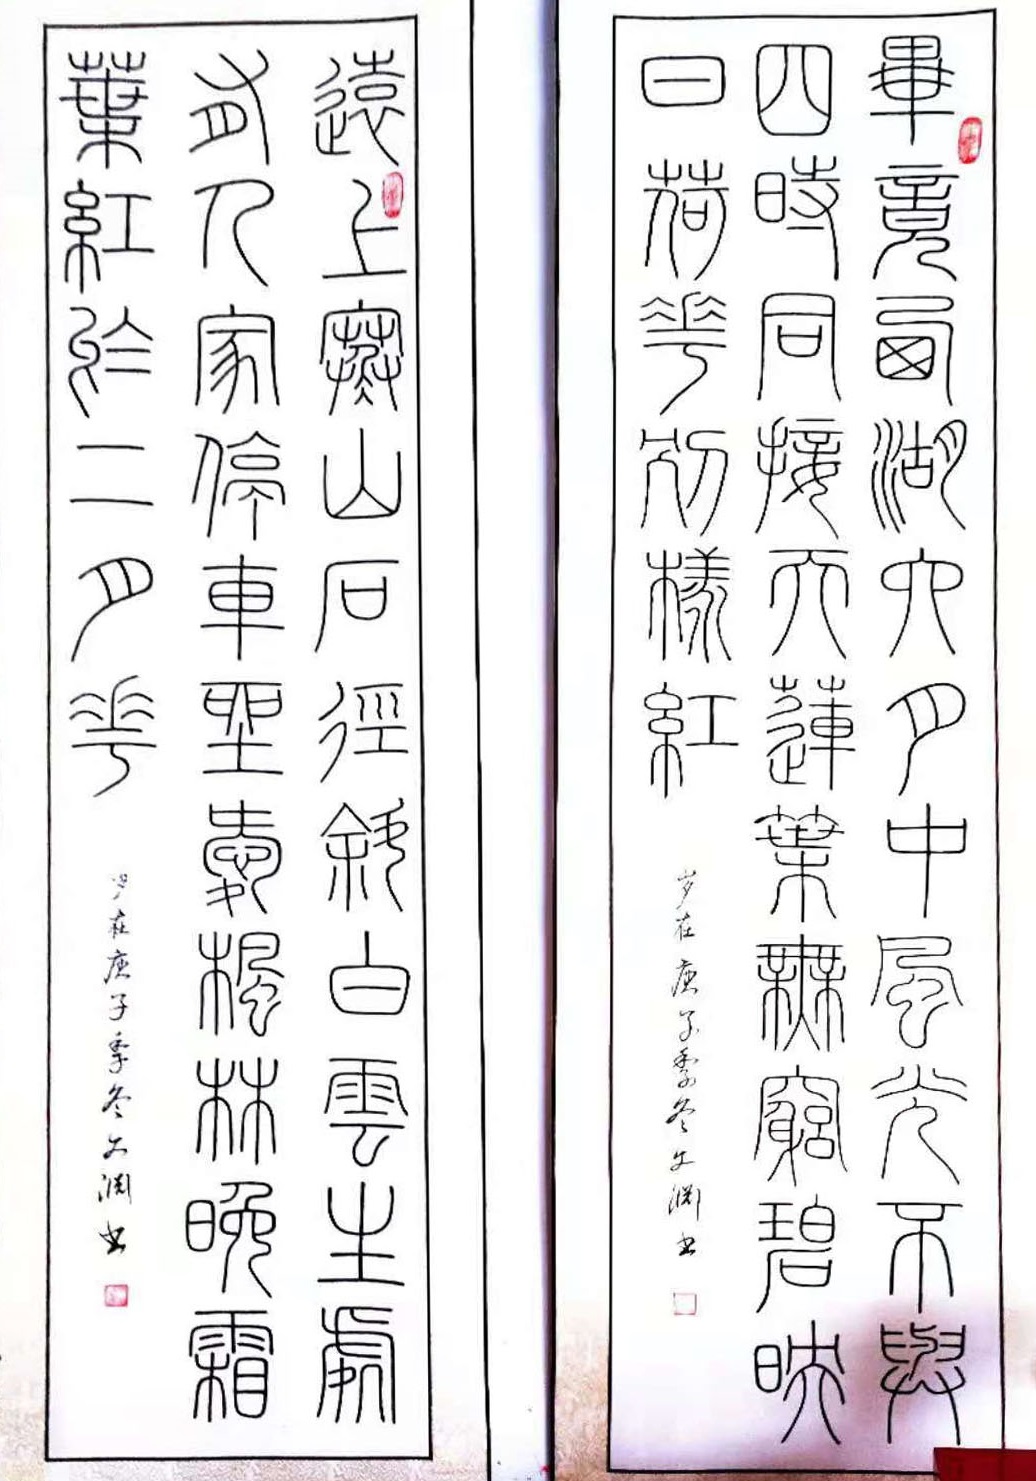 畢竟西湖六月中風光不與
四時同接天蓮葉無窮碧映
日荷花別樣紅
岁在庚子季冬文渊书
遠上寒山石徑斜白雲生處
有人家停車坐愛楓林晚霜
葉紅於二月花
岁在庚子季冬文渊书